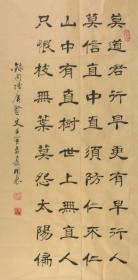 莫道君行早更有早行人
莫信直中直須防仁不仁
山中有直樹世上無直人
只恨枝無葉莫怨太陽偏